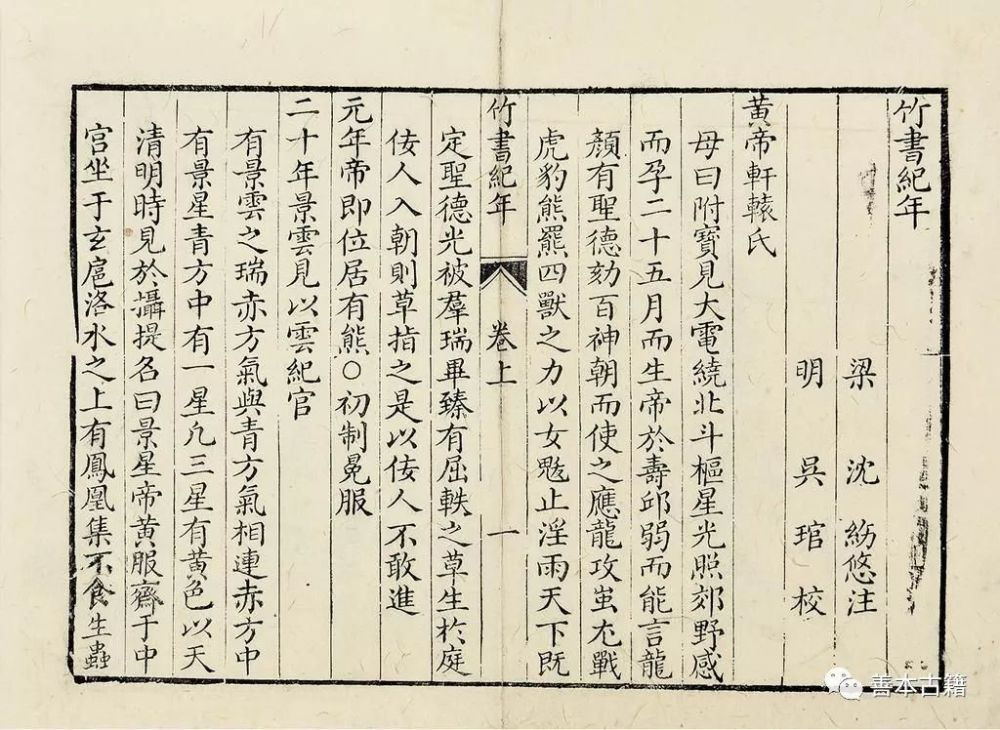 竹書紀年
梁 沈 約 悠 注
明 吳 琯 校
黃帝軒轅氏
母曰附寶見大電繞北斗樞星光照郊野感
而孕二十五月而生帝於壽邱弱而能言龍
顏有聖德劾百神朝而使之應龍攻蚩尤戰
虎豹熊羆四獸之力以女魃止淫雨天下既
竹書紀年 卷上 一
定聖德光被羣瑞畢臻有屈軼之草生於庭
佞人入朝則草指之是以佞人不敢進
元年帝即位居有熊○初制冕服
二十年景雲見以雲紀官
有景雲之瑞赤方氣與青方氣相連赤方中
有兩星青方中有一星凡三星有黃色以天
清明時見於攝提名曰景星帝黃服齋于中
宮坐于玄扈洛水之上有鳳凰集不食生蟲
善本古籍